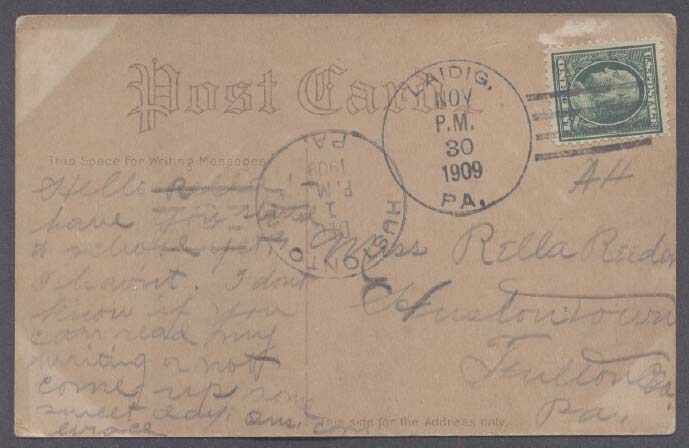 Post Card
LAIDIG,
NOV
P.M.
30
1909
PA.
U.S. POSTAGE
ONE CENT
This Space for Writing Messages
HUSTONTO
DEC
1
P.M.
1909
PA.
AH
Hello Rella,
have you started
to school yet
I haint. I dont
know if you
can read my
writing or not
come up some
sweet day. ans.
Miss Rella Reeder
Hustontown
Fulton Co.
Pa.
This side for the Address only.